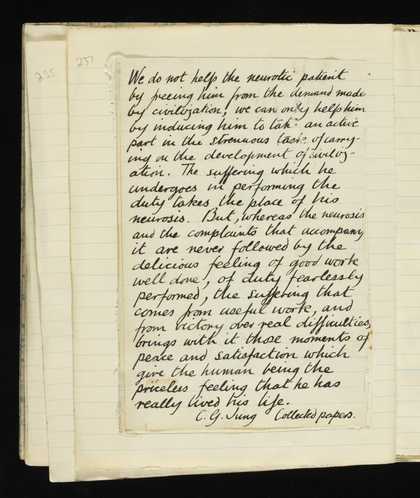 255
257
We do not help the neurotic patient
by freeing him from the demand made
by civilization; we can only help him
by inducing him to take an active
part in the strenuous task of carry-
ing on the development of civiliz-
ation. The suffering which he
undergoes in performing the
duty takes the place of his
neurosis. But, whereas the neurosis
and the complaints that accompany
it are never followed by the
delicious feeling of good work
well done, of duty fearlessly
performed, the suffering that
comes from useful work, and
from victory over real difficulties,
brings with it those moments of
peace and satisfaction which
give the human being the
priceless feeling that he has
really lived his life.
C. G. Jung Collected papers.